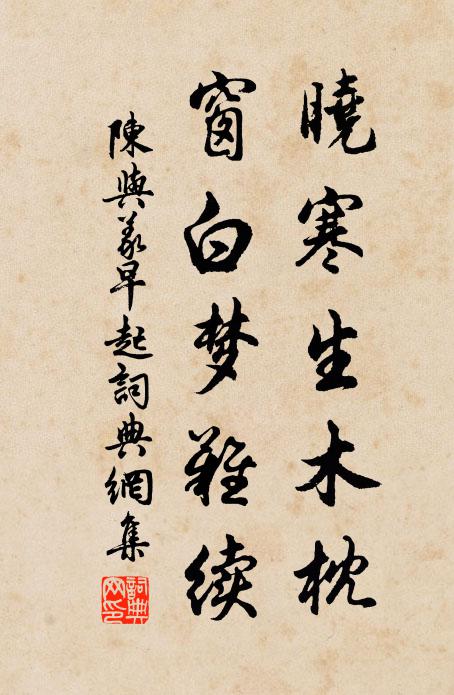 曉寒生木枕
窗白梦難续
陳與義早起詞典網集
詞典文印